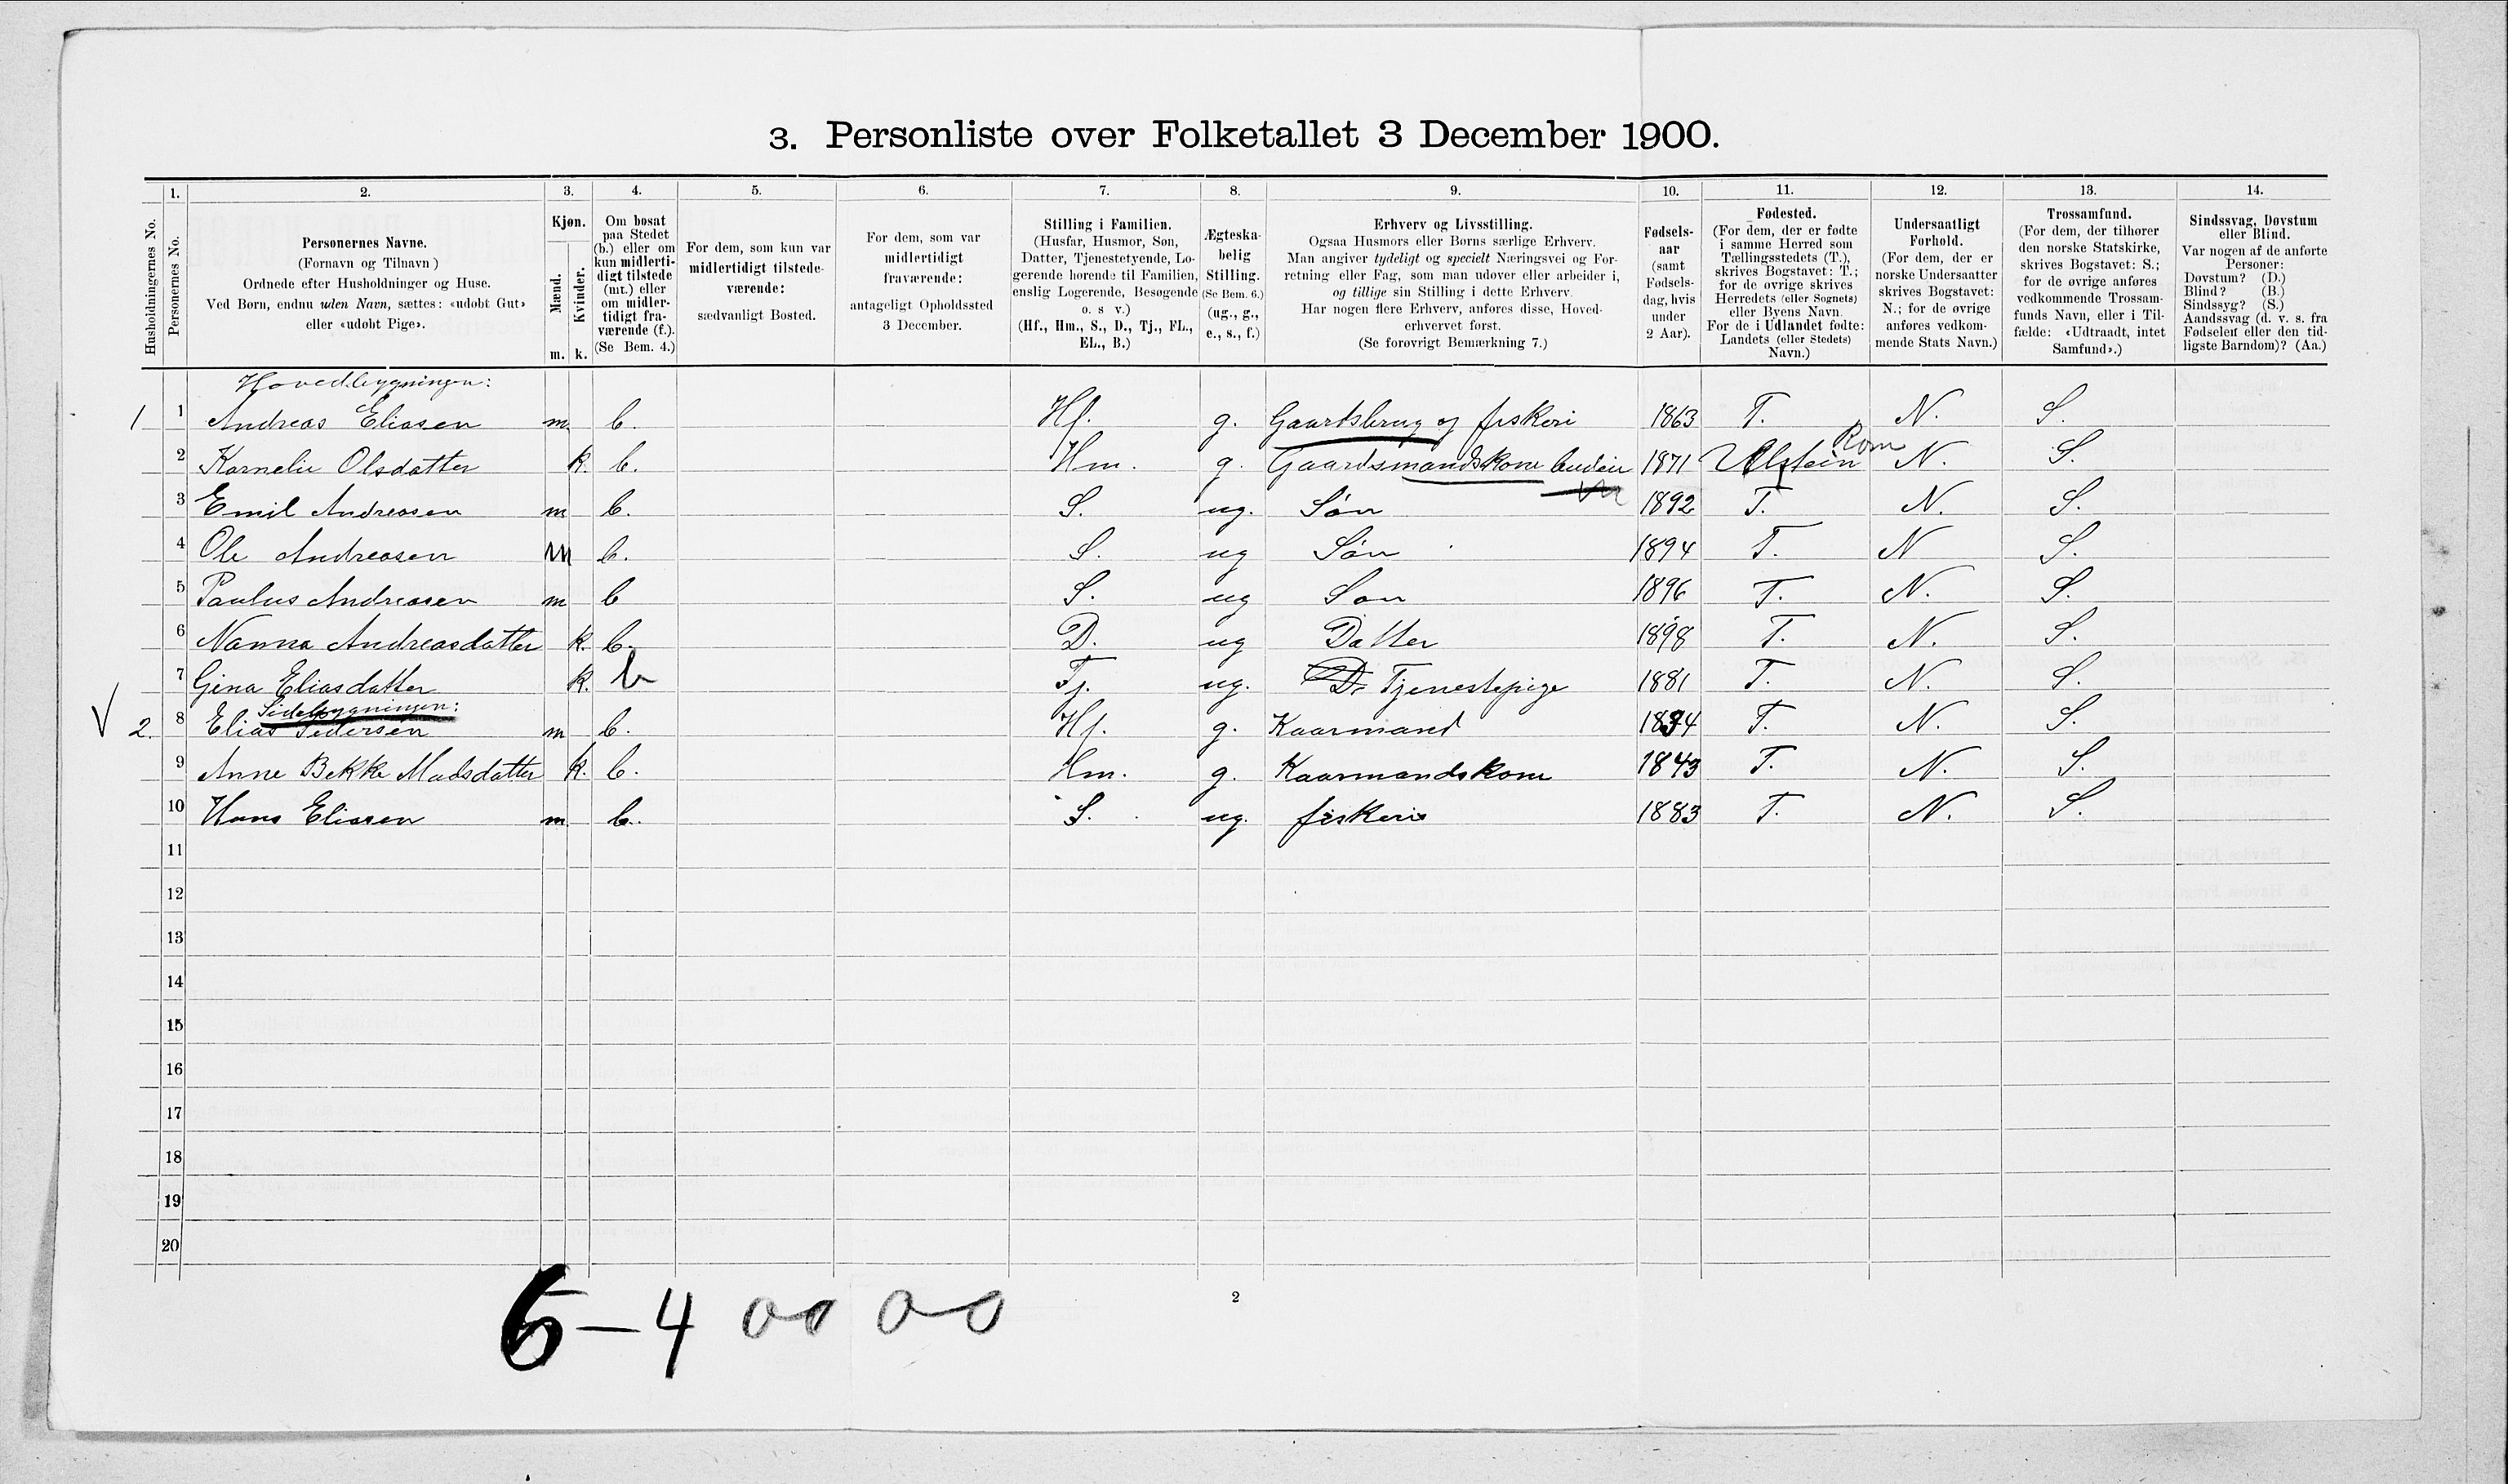 3. Personliste over Folketallet 3 December 1900.
1. 2. 3. 4. 5. 6. 7. 8. 9. 10. 11. 12. 13. 14.
Husholdningernes No.
Personernes No.
Personernes Navne.
(Fornavn og Tilnavn)
Ordnede efter Husholdninger og Huse.
Ved Børn, endnu uden Navn, sættes: «udøbt Gut»
eller «udøbt Pige».
Kjøn.
Mænd.
Kvinder.
m. k.
Om bosat
paa Stedet
(b.) eller om
kun midlerti-
digt tilstede
(mt.) eller
om midler-
tidigt fra-
værende (f.).
(Se Bem. 4.)
For dem, som kun var
midlertidigt tilstede-
værende:
sædvanligt Bosted.
For dem, som var
midlertidigt
fraværende:
antageligt Opholdssted
3 December.
Stilling i Familien.
(Husfar, Husmor, Søn,
Datter, Tjenestetyende, Lo-
gerende hørende til Familien,
enslig Logerende, Besøgende
o. s v.)
(Hf., Hm., S., D., Tj., FL.,
EL., B.)
Ægteska-
belig
Stilling.
(Se Bem. 6.)
(ug., g.,
e., s., f.)
Erhverv og Livsstilling.
Ogsaa Husmors eller Børns særlige Erhverv.
Man angiver tydeligt og specielt Næringsvei og For-
retning eller Fag, som man udøver eller arbeider i,
og tillige sin Stilling i dette Erhverv.
Har nogen flere Erhverv, anføres disse, Hoved-
erhvervet først.
(Se forøvrigt Bemærkning 7.)
Fødsels-
aar
(samt
Fødsels-
dag, hvis
under
2 Aar).
Fødested.
(For dem, der er fødte
i samme Herred som
Tællingsstedets (T.),
skrives Bogstavet: T.;
for de øvrige skrives
Herredets (eller Sognets)
eller Byens Navn.
For de i Udlandet fødte:
Landets (eller Stedets)
Navn.)
Undersaatligt
Forhold.
(For dem, der er
norske Undersaatter
skrives Bogstavet:
N.; for de øvrige
anføres vedkom-
mende Stats Navn.)
Trossamfund.
(For dem, der tilhører
den norske Statskirke,
skrives Bogstavet: S.;
for de øvrige anføres
vedkommende Trossam-
funds Navn, eller i Til-
fælde: «Udtraadt, intet
Samfund».)
Sindssvag, Døvstum
eller Blind.
Var nogen af de anførte
Personer:
Døvstum? (D.)
Blind? (B.)
Sindssyg? (S.)
Aandssvag (d. v. s. fra
Fødselen eller den tid-
ligste Barndom)? (Aa.)
Hovedbygningen:
1 1 Andreas Eliasen m. b. Hf. g. Gaardsbrug og fiskeri 1863 T. N. S.
2 Kornelie Olsdatter k. b. Hm. g. Gaardsmandskone budeie 1871 Ulstein Rom N. S.
3 Emil Andreasen m b. S. ug. Søn 1892 T. N. S.
4 Ole Andreasen m b. S. ug Søn 1894 T. N S.
5 Paulus Andreasen m b S. ug Søn 1896 T. N. S.
6 Nanna Andreasdatter k. b. D. ug Datter 1898 T. N. S.
7 Gina Eliasdatter k. b Tj. ug. D. Tjenestepige 1881 T. N. S.
Sidebygningen:
2. 8 Elias Pedersen m b. Hf. g. Kaarmand 1834 T. N. S.
9 Anne Bekke Madsdatter k. b. Hm. g. Kaarmandskone 1843 T. N. S.
10 Hans Eliasen m. b. S. ug. fiskeri 1883 T. N. S.
11
12
13
14
15
16
17
18
19
20
6 – 4 00 0–0
2